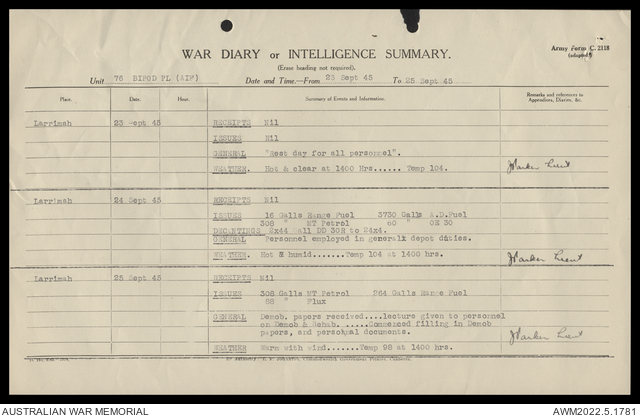 Army Form C. 2118
(adapted)
WAR DIARY or INTELLIGENCE SUMMARY.
(Erase heading not required).
Unit 76 BIPOD PL (AIF) Date and Time.—From 23 Sept 45 To 25 Sept 45
Place. Date. Hour. Summary of Events and Information. Remarks and references to Appendices, Diaries, &c.
Larrimah 23 Sept 45 RECEIPTS Nil
ISSUES Nil
GENERAL "Rest day for all personnel".
WEATHER. Hot & clear at 1400 Hrs...... Temp 104.
JParker Lieut
Larrimah 24 Sept 45 RECEIPTS Nil
ISSUES 16 Galls Range Fuel 3730 Galls A.D.Fuel
308 " MT Petrol 60 OE 30
DECANTINGS 2x44 all DD 30R to 24x4.
GENERAL Personnel employed in general depot duties.
WEATHER. Hot & humid.......Temp 104 at 1400 hrs.
JParker Lieut
Larrimah 25 Sept 45 RECEIPTS Nil
ISSUES 308 Galls MT Petrol 264 Galls Range Fuel
88 " Flux
GENERAL Demob. papers received....lecture given to personnel
on Demob & Rehab. .....Commenced filling in Demob
papers, and personal documents.
JParker Lieut
WEATHER Warm with wind.......Temp 98 at 1400 hrs.
AUSTRALIAN WAR MEMORIAL AWM2022.5.1781